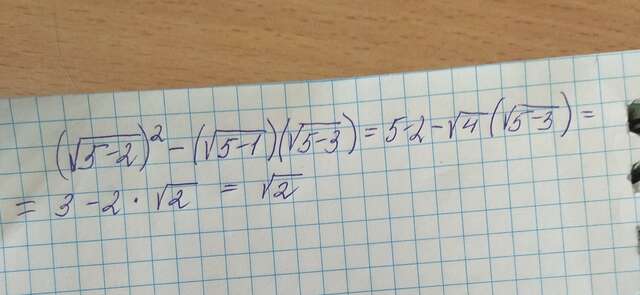 (√5-2)² - (√5-1)(√5-3) = 5-2-√4(√5-3) =
= 3 - 2 · √2 = √2